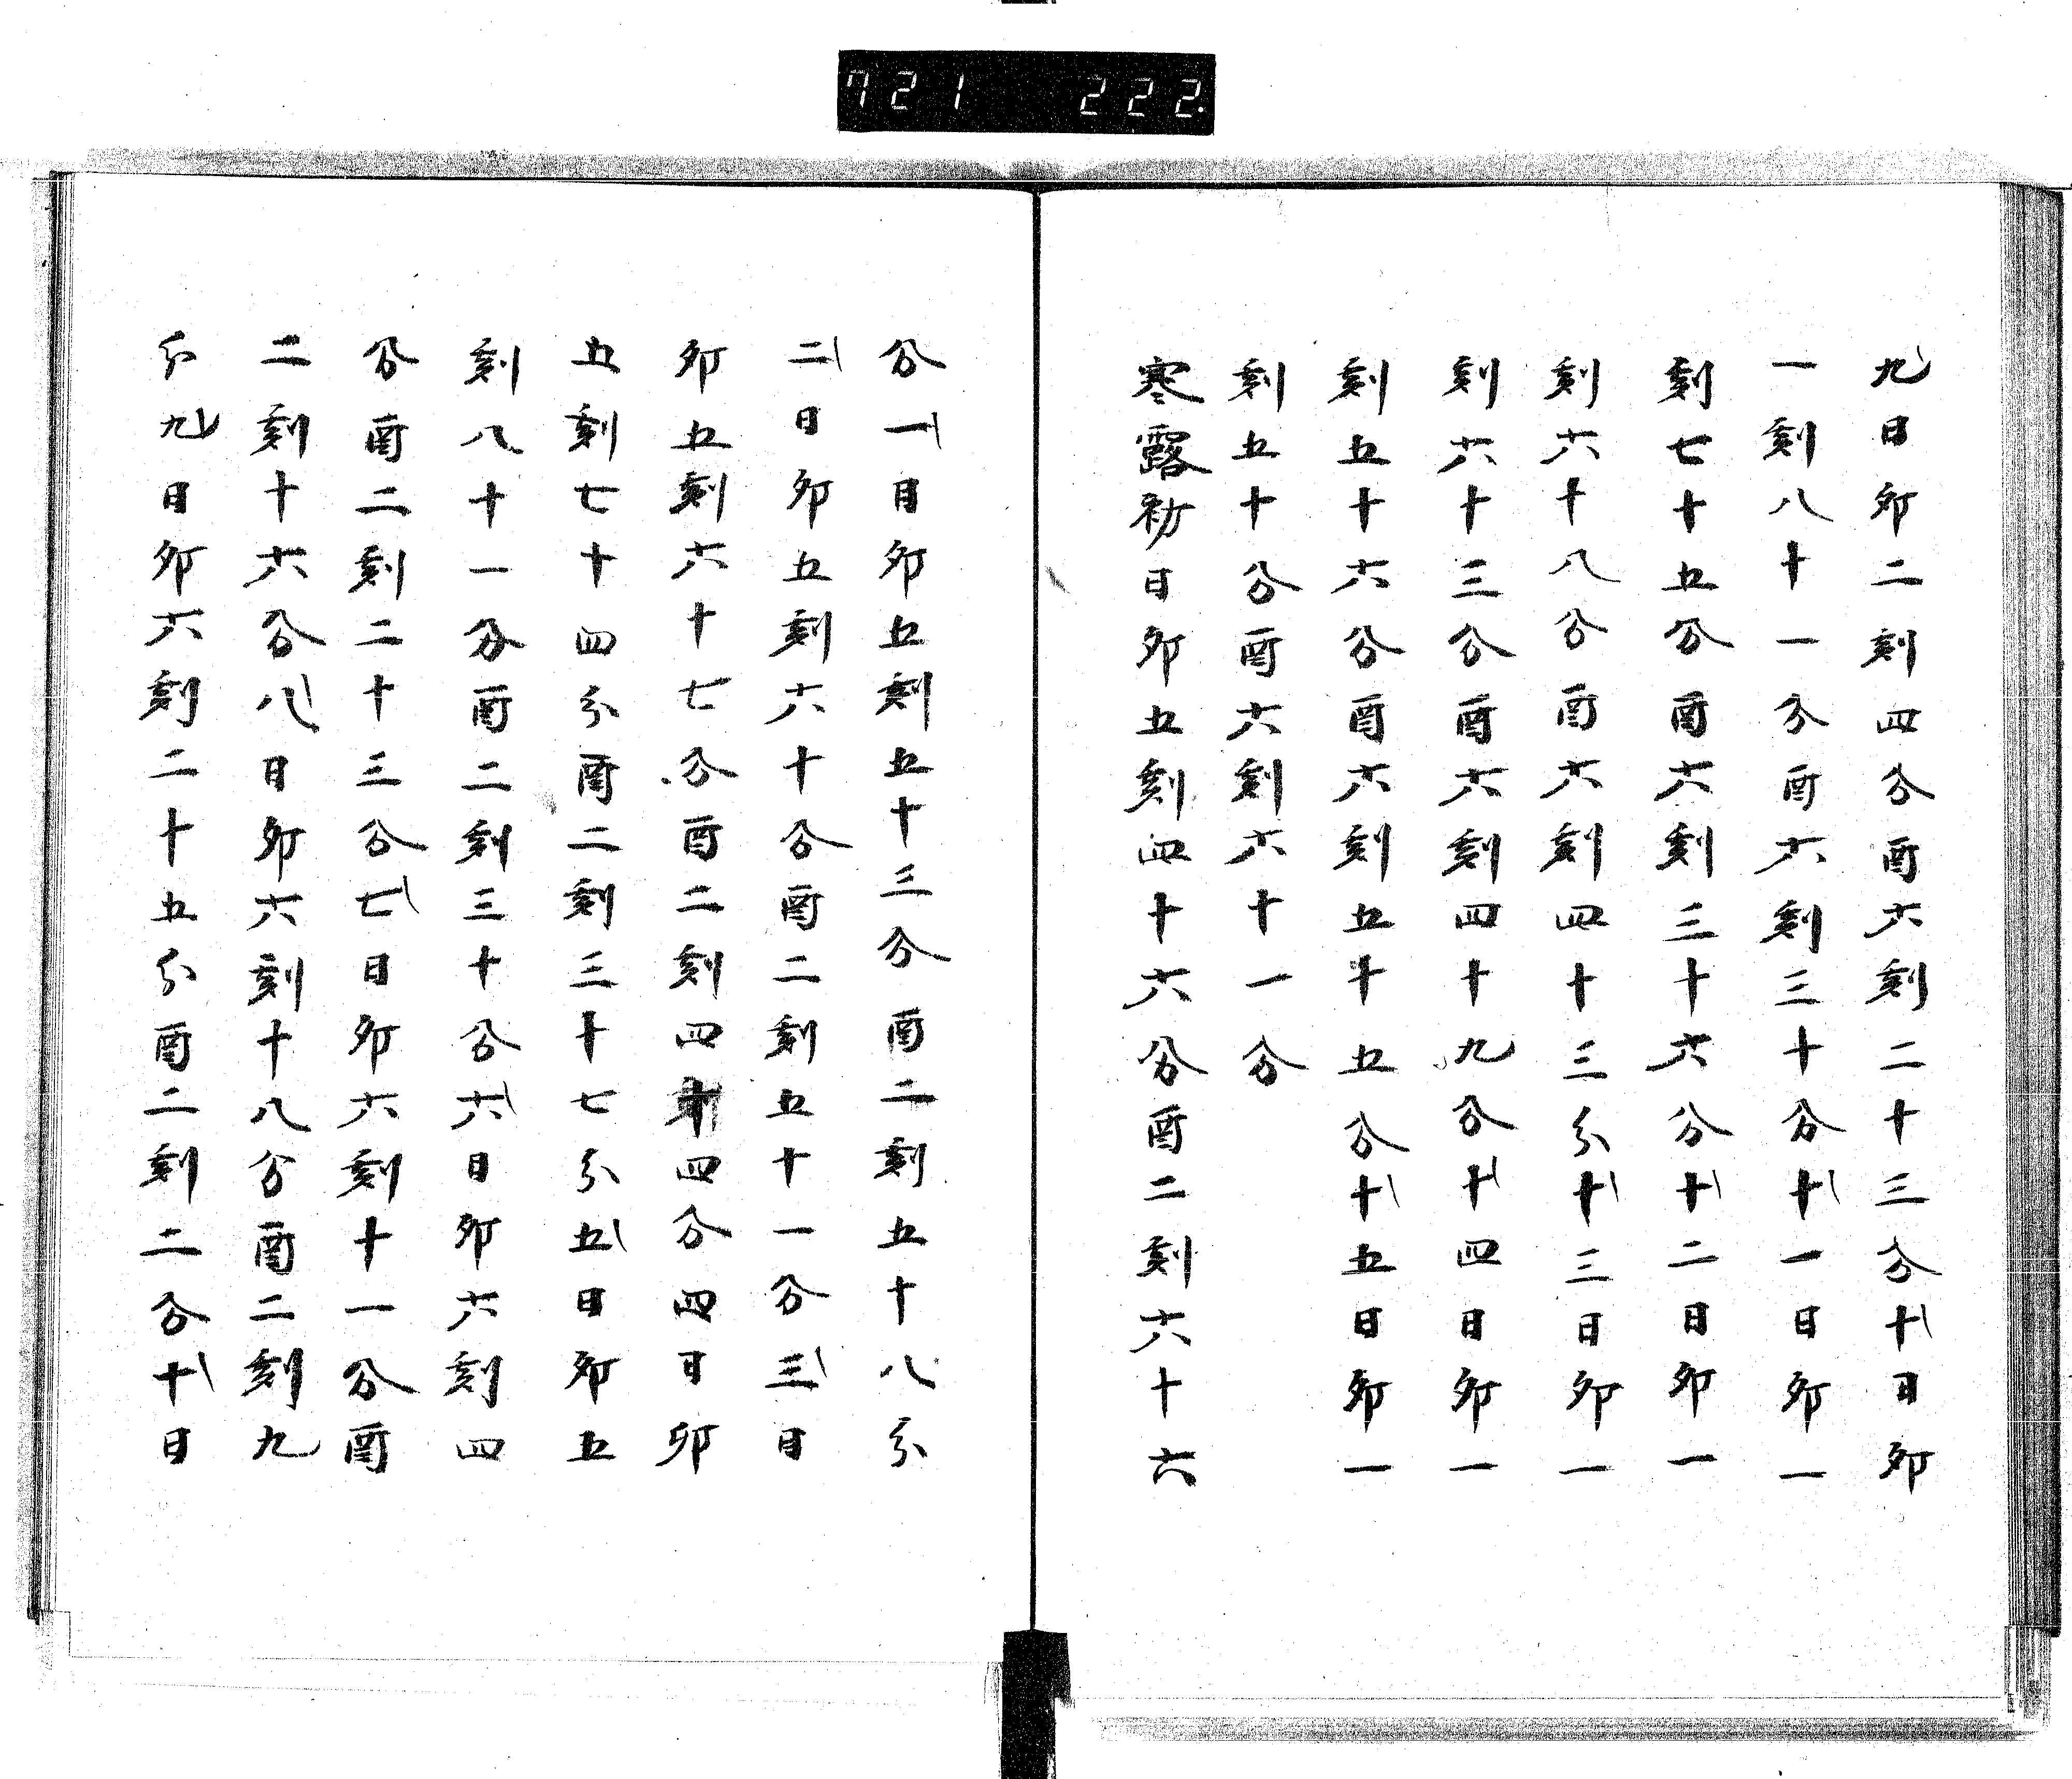 721 222.
九日卯二刻四分酉六刻二十三分十日卯
一刻八十一分酉六刻三十分十一日卯一
刻七十五分酉六刻三十六分十二日卯一
刻六十八分酉六刻四十三分十三日卯一
刻六十三分酉六刻四十九分十四日卯一
刻五十六分酉六刻五十五分十五日卯一
刻五十分酉六刻六十一分
寒露初日卯五刻四十六分酉二刻六十六
分一日卯五刻五十三分酉二刻五十八分
二日卯五刻六十分酉二刻五十一分三日
卯五刻六十七分酉二刻四十四分四日卯
五刻七十四分酉二刻三十七分五日卯五
刻八十一分酉二刻三十分六日卯六刻四
分酉二刻二十三分七日卯六刻十一分酉
二刻十六分八日卯六刻十八分酉二刻九
分九日卯六刻二十五分酉二刻二分十日